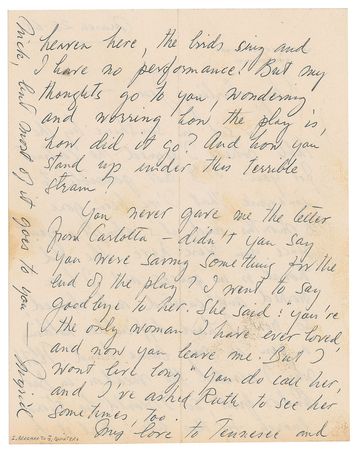 heaven here, the birds sing and
I have no performance! But my
thoughts go to you, wondering
and worring how the play is,
how did it go? And how you
stand up under this terrible
strain?
You never gave me the letter
from Carlotta – didn't you say
you were saving something for the
end of the play? I want to say
goodbye to her. She said: "you're
the only woman I have ever loved
and now you leave me. But I
wont live long" You do call her,
and I've asked Ruth to see her
sometimes, too.
My love to Tennesee and
Mick, but most of it goes to you — Ingrid